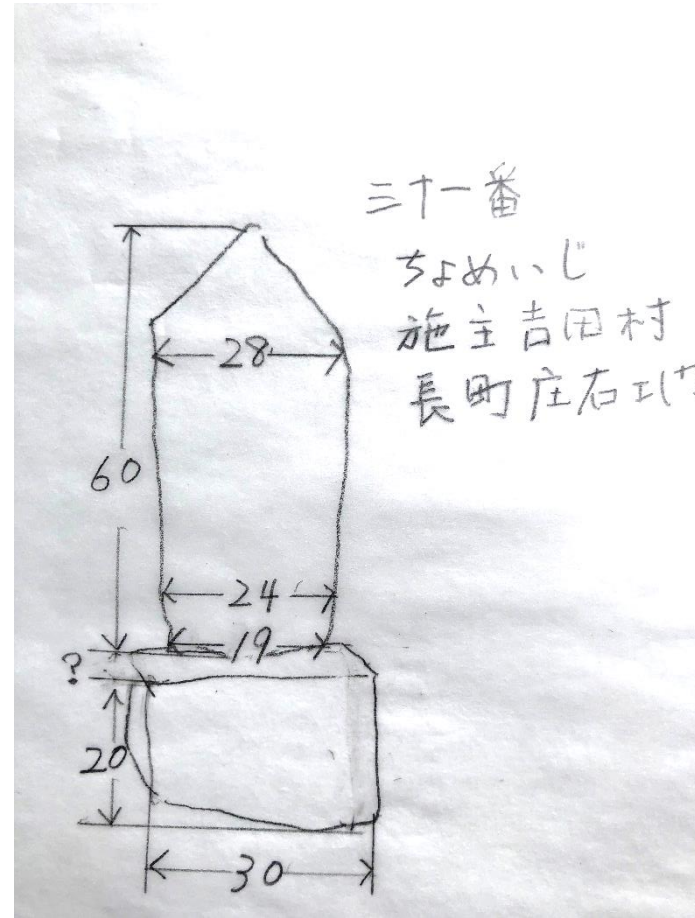 三十一番
ちよめいじ
施主吉田村
長町庄右エ
28
60
24
19
?
20
30